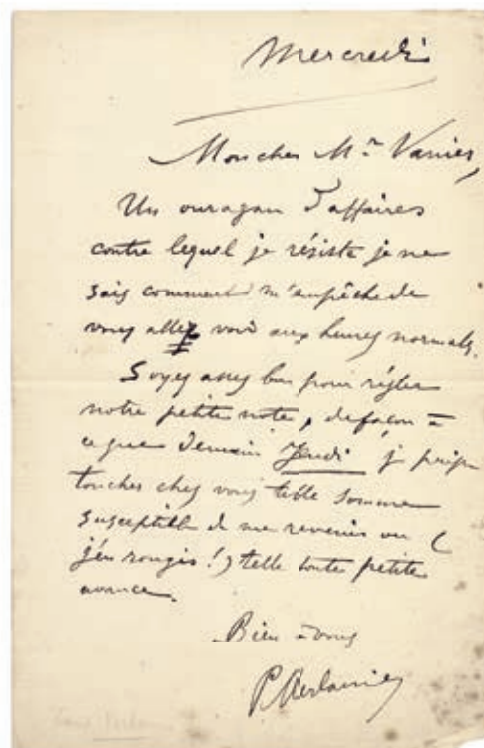 Mercredi
Mon cher Mr. Vanier,
Un ouragan d'affaires
contre lequel je résiste je ne
sais comment m'empêche de
vous allez voir aux heures normales.
Soyez assez bon pour régler
notre petite note, de façon à
ce que demain Jeudi je puisse
toucher chez vous telle somme
susceptible de me revenir ou (
j'en rougis!) telle toute petite
avance.
Bien à vous
P. Verlaine